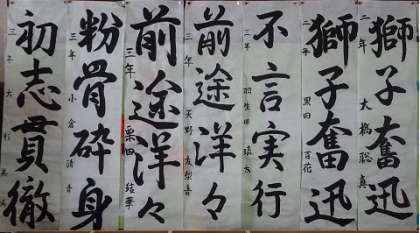 獅子奮迅
二年 大橋聡真
獅子奮迅
二年 黒田百花
不言実行
二年 羽生田
前途洋々
三年 天野友梨香
前途洋々
三年 栗田結華
粉骨砕身
三年 小倉清香
初志貫徹
三年 大